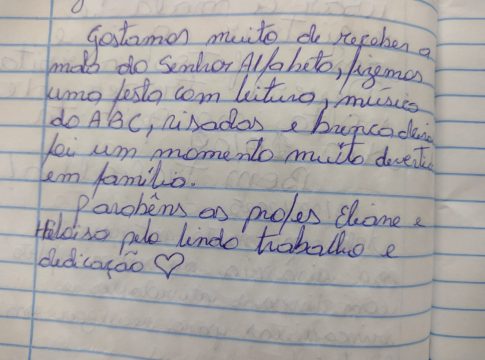 Gostamos muito de receber a
mala do Senhor Alfabeto, fizemos
uma festa com leitura, música
do ABC, risadas e brincadeira
foi um momento muito diverti
em família.
Parabéns as profes Eliane e
Heloisa pelo lindo trabalho e
dedicação ♡